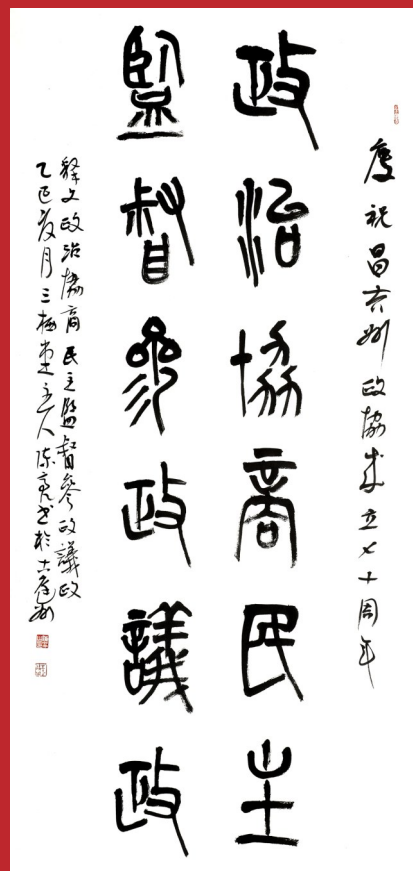 慶祝昌吉州政協成立七十周年
政治協商民主
監督參政議政
釋文政治協商民主監督參政議政
乙巳夏月三梅堂主人陳亮書於古庭州